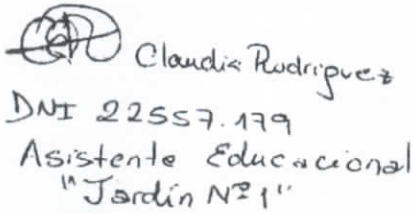 Claudia Rodriguez
DNI 22557.179
Asistente Educacional
"Jardín Nº 1"